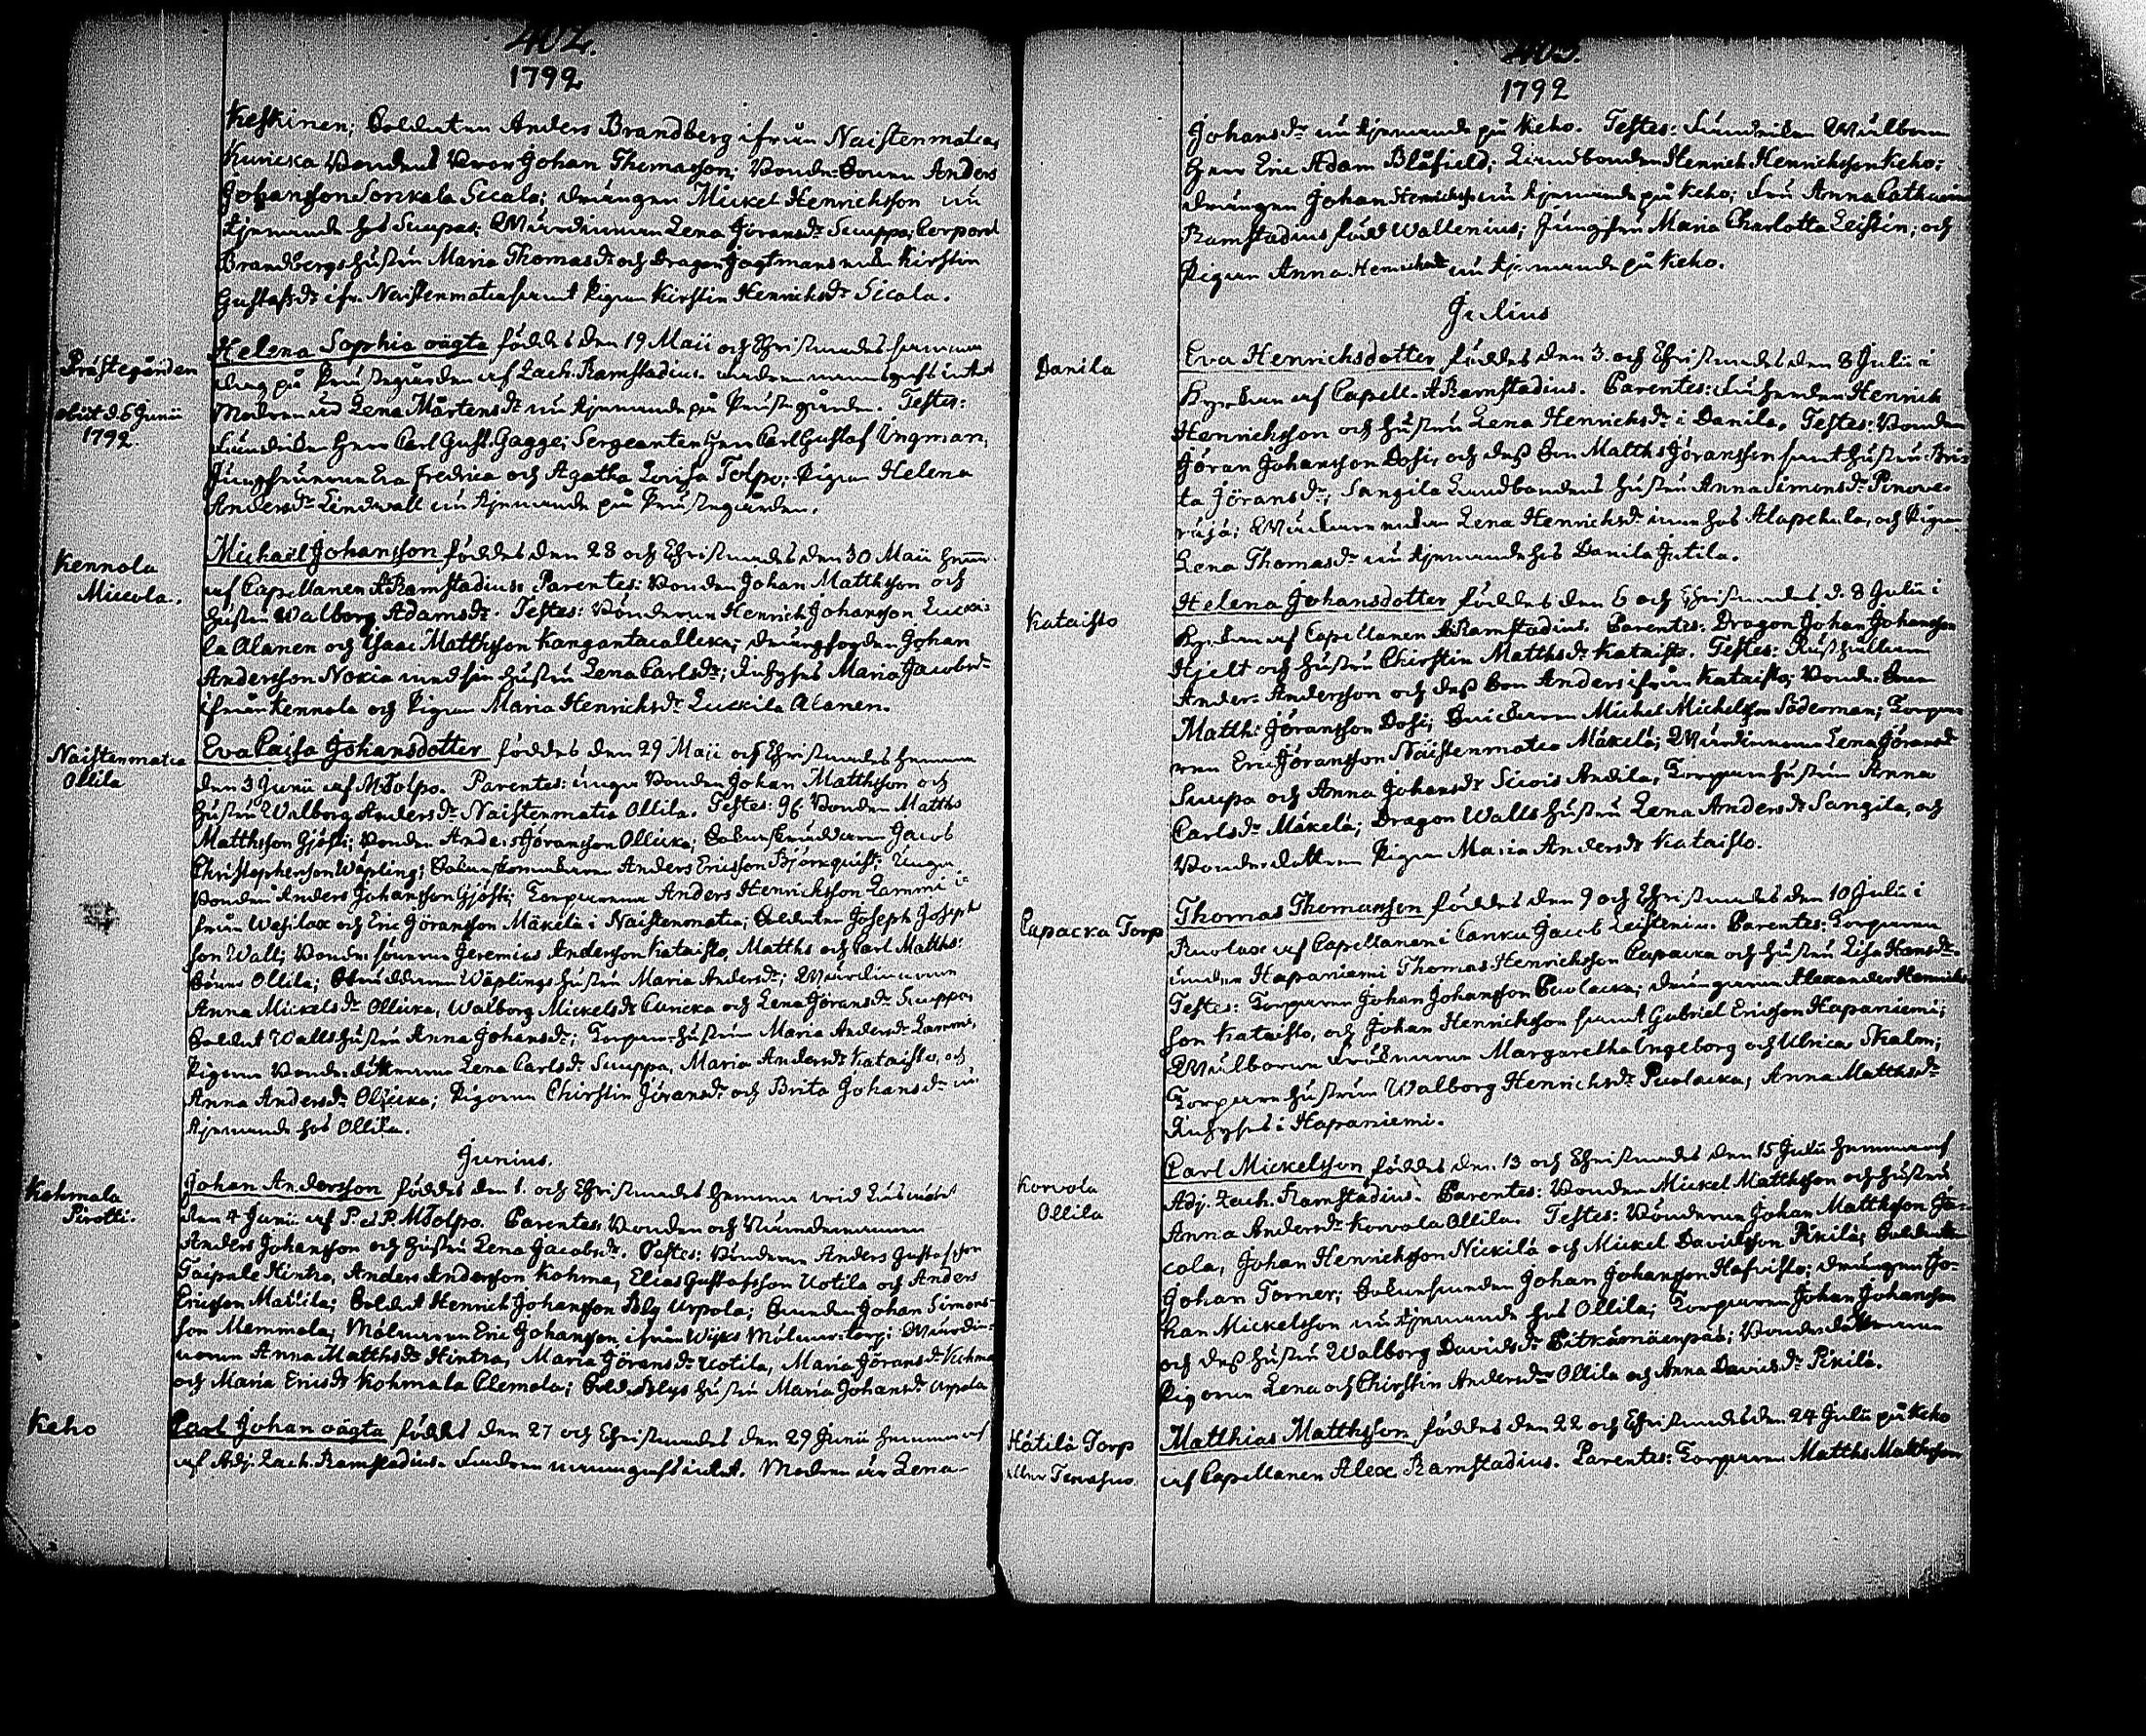 402.
1792
Keskinen; Soldaten Anders Brandberg ifrån Naistenmatca,
Kuricka Bondens Broder Johan Thomasson; Bonde-Sonen Anders
Johansson Sorckala Sicala; Drängen Mickel Henrichsson nu
tjenande hos Suupas; Värdinnan Lena Jöransdr Suuppa, Corporal
Brandbergs hustru Maria Thomasdr och Dragon Jagtmans enka Kirstin
Gustafsdr ifr. Naistenmatca samt Pigan Kirstin Henrichsdr Sicala.
Prästegården
obiit d. 6 Junii
1792
Helena Sophia oägta föddes den 19 Maii och Christnades samma
dag på Prästegården af Zach. Ramstadius. Fadren namngafs intet
Modren är Lena Mårtensdr nu tjenande på Prästegården. Testes:
Fändriken Herr Carl Gust. Gagge; Sergeanten Herr Carl Gustaf Ungman,
Jungfruerne Eva Fredrica och Agatha Lovisa Tolpo; Pigan Helena
Andersdr Lindwall nu tjenande på Prästegården.
Kennola
Miecola.
Michaël Johansson föddes den 28 och Christnades den 30 Maii hemma
af Capellanen A Ramstadius. Parentes: Bonden Johan Matthsson och
hustru Walborg Adamsdr. Testes: Bönderne Henrich Johansson Luckki-
la Alanen och Isaac Matthsson Kangantacallica; Drängfogden Johan
Andersson Nokia med sin hustru Lena Carlsdr; Inhyses Maria Jacobsdr
ifrån Kennola och Pigan Maria Henrichsdr Luckila Alanen.
Naistenmatca
Ollila
Eva Caisa Johansdotter föddes den 29 Maii och Christnades hemma
den 3 Junii af M. Tolpo. Parentes: unga Bonden Johan Matthsson och
hustru Walborg Andersdr Naistenmatca Ollila. Testes: Gl. Bonden Matths
Matthsson Gjösti; Bonden Anders Jöransson Ollicka; Sockneskräddaren Jacob
Christophersson Wäpling; Anders Ericsson Björkquist; Unga
Bonden Anders Johansson Gjösti; Torparena Anders Henrichsson Lammi i-
från Wesilax och Eric Jöransson Mäkelä i Naistenmatca; Soldaten Joseph Josephs-
son Wall; Bonde-sönerna Jeremias Andersson Kataisto, Matths och Carl Matths-
söner Ollila; Skräddaren Wäplings hustru Maria Andersdr; Värdinnorna
Anna Mickelsdr Ollicka, Walborg Mickelsdr Curicka och Lena Jöransdr Suuppa;
Soldat Walls hustru Anna Johansdr; Torpare-hustrun Maria Andersdr Lammi,
Pigorna Bonde-döttrarna Lena Carlsdr Suuppa, Maria Andersdr Kataisto, och
Anna Andersdr Ollicka; Pigorna Chirstin Jöransdr och Brita Johansdr nu
tjenande hos Ollila.
Junius.
Kohmala
Pirotti.
Johan Andersson föddes den 1. och Christnades hemma vid
den 4 Junii af P. et P. M Tolpo. Parentes: Bonden och Nämndemannen
Anders Johansson och hustru Lena Jacobsdr. Testes: Bönderna Anders Gustafsson
Taipale Hintza, Anders Andersson Kohma, Elias Gustafsson Uotila och Anders
Ericsson Mattila; Soldat Henrich Johansson Bly Urpola; Sonen Johan Simons-
son Memmola; Mölnaren Eric Johansson ifrån Wijks Mölnar-torp; Värdin-
norna Anna Matthsdr Hintza, Maria Jöransdr Uotila, Maria Jöransdr Kohma
och Maria Ericsdr Kohmala Clemola; Sold. Blys hustru Maria Johansdr Urpola
Keho
Carl Johan oägta föddes den 27 och Christnades den 29 Junii hemma
af Adj. Zach. Ramstadius. Fadren namngafs intet. Modren är Lena
1792
Johansdr nu tjenande på Keho. Testes: Fändriken Wälborne
Herr Eric Adam Blåfield; Landbonden Henrich Henrichsson Keho;
Drängen Johan Henrichsson nu tjenande på Keho; Fru Anna Catharina
Ramstadius född Wallenius; Jungfru Maria Charlotta Leistén, och
Pigan Anna Henrichsdr nu tjenande på Keho.
Julius
Danila
Eva Henrichsdotter föddes den 3. och Christnades den 8 Julii i
Kyrckan af Capell. A Ramstadius. Parentes: Henrich
Henrichsson och hustru Lena Henrichsdr i Danila. Testes: Bonden
Jöran Johansson Dosi, och dess Son Matths Jöransson samt hustru Bri-
ta Jöransdr, Sangila Landbondens hustru Anna Simonsdr
enkan Lena Henrichsdr inne hos Alapekula, och Pigan
Lena Thomasdr nu tjenande hos Danila Jutila.
Kataisto
Helena Johansdotter föddes den 6 och Christnades d. 8 Julii i
Kyrckan af Capellanen A Ramstadius. Parentes: Dragon Johan Johansson
Hjelt och hustru Chirstin Matthsdr Kataisto. Testes: Rusthållaren
Anders Andersson och dess Son Anders ifrån Kataisto; Bonde-Sonen
Matths Jöransson Dosi; Snickaren Michel Michelsson Söderman; Torpa-
ren Eric Jöransson Naistenmatca Mäkelä; Värdinnorna Lena Jöransdr
Suupa och Anna Johansdr Sicois Andila, Torpare hustrun Anna
Carlsdr Mäkelä; Dragon Walls hustru Lena Andersdr Sangila, och
Bondedottren Pigan Maria Andersdr Kataisto.
Papacka Torp
Thomas Thomasson föddes den 9 och Christnades den 10 Julii i
af Capellanen i Canku Jacob Leistenius. Parentes: Torparen
under Hapaniemi Thomas Henrichsson Papacka och hustru Lisa Hansdr.
Testes: Torparen Johan Johansson Puolacka; Drängarna Alexander Henrichs-
son Kataisto, och Johan Henrichsson samt Gabriel Ericsson Hapaniemi;
Wälborna Fröknarna Margaretha Ingeborg och Ulrica Skalm;
Torpare hustrun Walborg Henrichsdr Puolacka, Anna Matthsdr
Inhyses i Hapaniemi.
Korvola
Ollila
Carl Mickelsson föddes den 13 och Christnades den 15 Julii hemma af
Adj. Zach. Ramstadius. Parentes: Bonden Mickel Matthsson och hustru
Anna Andersdr Korvola Ollila. Testes: Bönderna Johan Matthsson Ja-
cola, Johan Henrichsson Nickilä och Mickel Davidsson Pikilä; Soldaten
Johan Torner; Johan Johansson Hafvisto; Drängen Jo-
han Mickelsson nu tjenande hos Ollila; Torparen Johan Johansson
och dess hustru Walborg Davidsdr Pitkämäenpää; Bondedöttrarna
Pigorna Lena och Chirstin Andersdr Ollila och Anna Davidsdr Pikilä.
Hätilä Torp
eller Tervasuo.
Matthias Matthsson föddes den 22 och Christnades den 24 Julii på Keho
af Capellanen Alex. Ramstadius. Parentes: Torparen Matths Matthsson